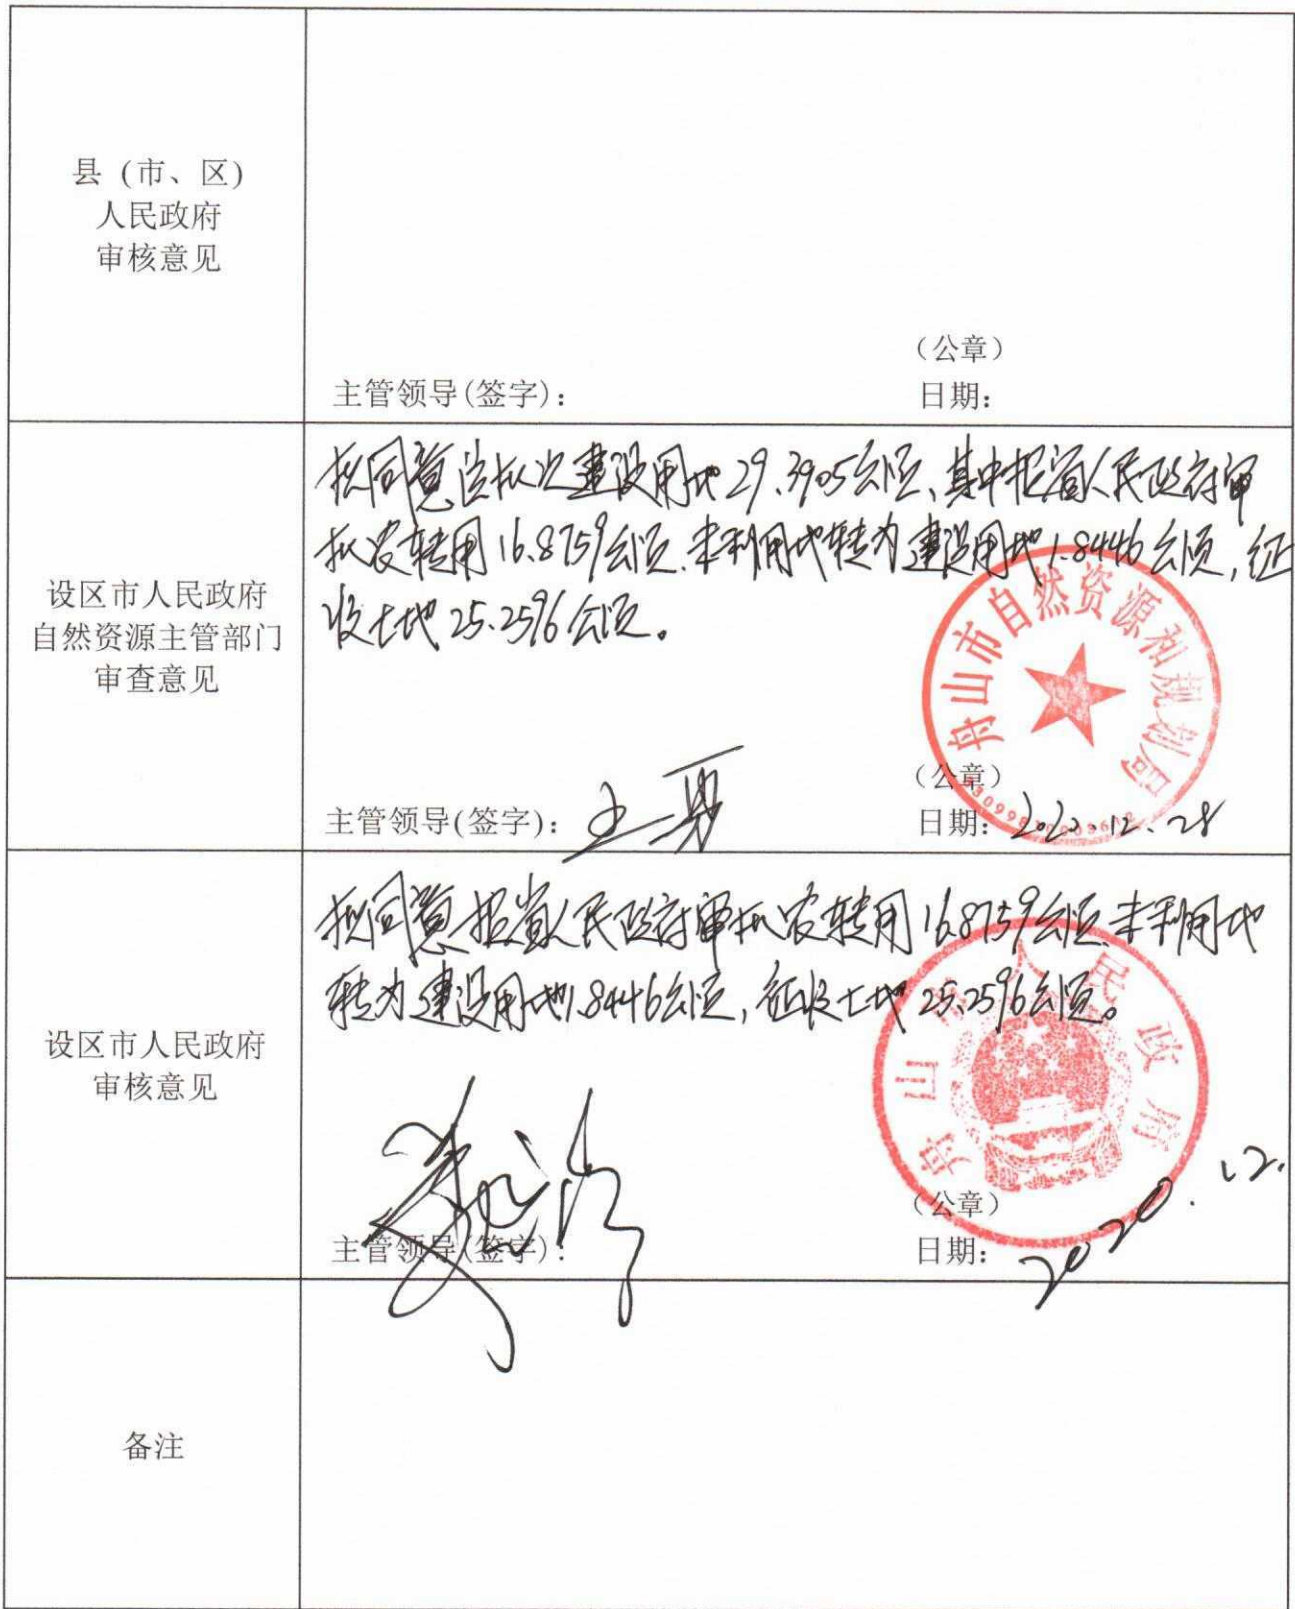 县 (市、区)
人民政府
审核意见
（公章）
主管领导(签字)：
日期：
设区市人民政府
自然资源主管部门
审查意见
拟同意该批次建设用地29.3905公顷、其中报省人民政府审
批农转用16.8759公顷.未利用地转为建设用地1.8446公顷,征
收土地25.2596公顷。
舟山市自然资源和规划局
（公章）
主管领导(签字)：
日期：2020.12.28
设区市人民政府
审核意见
拟同意报省人民政府审批农转用16.8759公顷.未利用地
转为建设用地1.8446公顷,征收土地25.2596公顷。
舟山市人民政府
（公章）
主管领导(签字)：
日期：2020.12.
备注